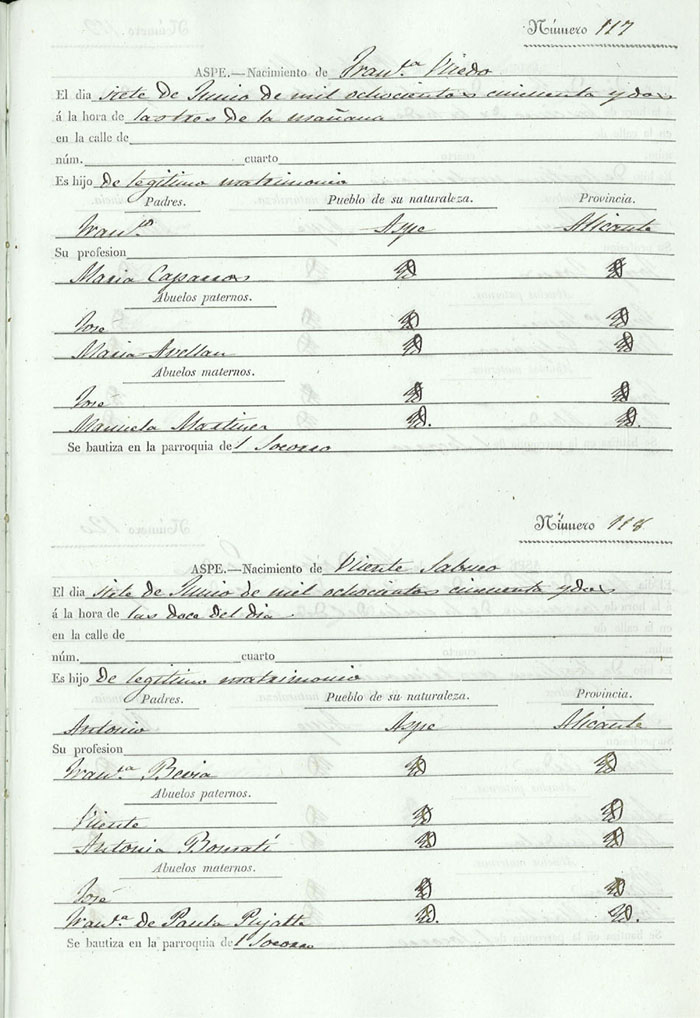 Número 117
ASPE.—Nacimiento de Fran.ca
El dia siete de Junio de mil ochocientos cincuenta y dos
á la hora de las tres de la mañana
en la calle de
núm. cuarto
Es hijo de legitimo matrimonio
Padres. Pueblo de su naturaleza. Provincia.
Fran.co Aspe Alicante
Su profesion
Maria Caparros id id
Abuelos paternos.
José id id
Maria Avellan id id
Abuelos maternos.
José id id
Manuela Martinez id. id.
Se bautiza en la parroquia del Socorro
Número 118
ASPE.—Nacimiento de Vicente Sabuco
El dia siete de Junio de mil ochocientos cincuenta y dos
á la hora de las doce del dia
en la calle de
núm. cuarto
Es hijo de legitimo matrimonio
Padres. Pueblo de su naturaleza. Provincia.
Antonio Aspe Alicante
Su profesion
Fran.ca Bevia id id
Abuelos paternos.
Vicente id id
Antonia Bonmatí id id
Abuelos maternos.
José id id
Fran.ca de Paula Pujalte id. id.
Se bautiza en la parroquia del Socorro